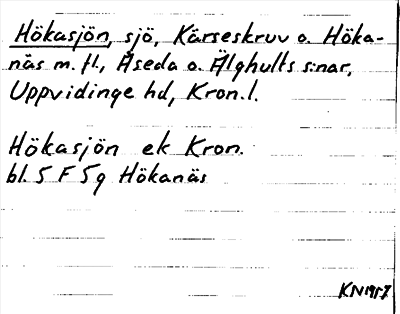 Hökasjön, sjö, Kärseskruv o. Höka-
näs m. fl., Åseda o. Älghults s:nar,
Uppvidinge hd, Kron. l.
Hökasjön ek Kron.
bl. 5 F 5g Hökanäs